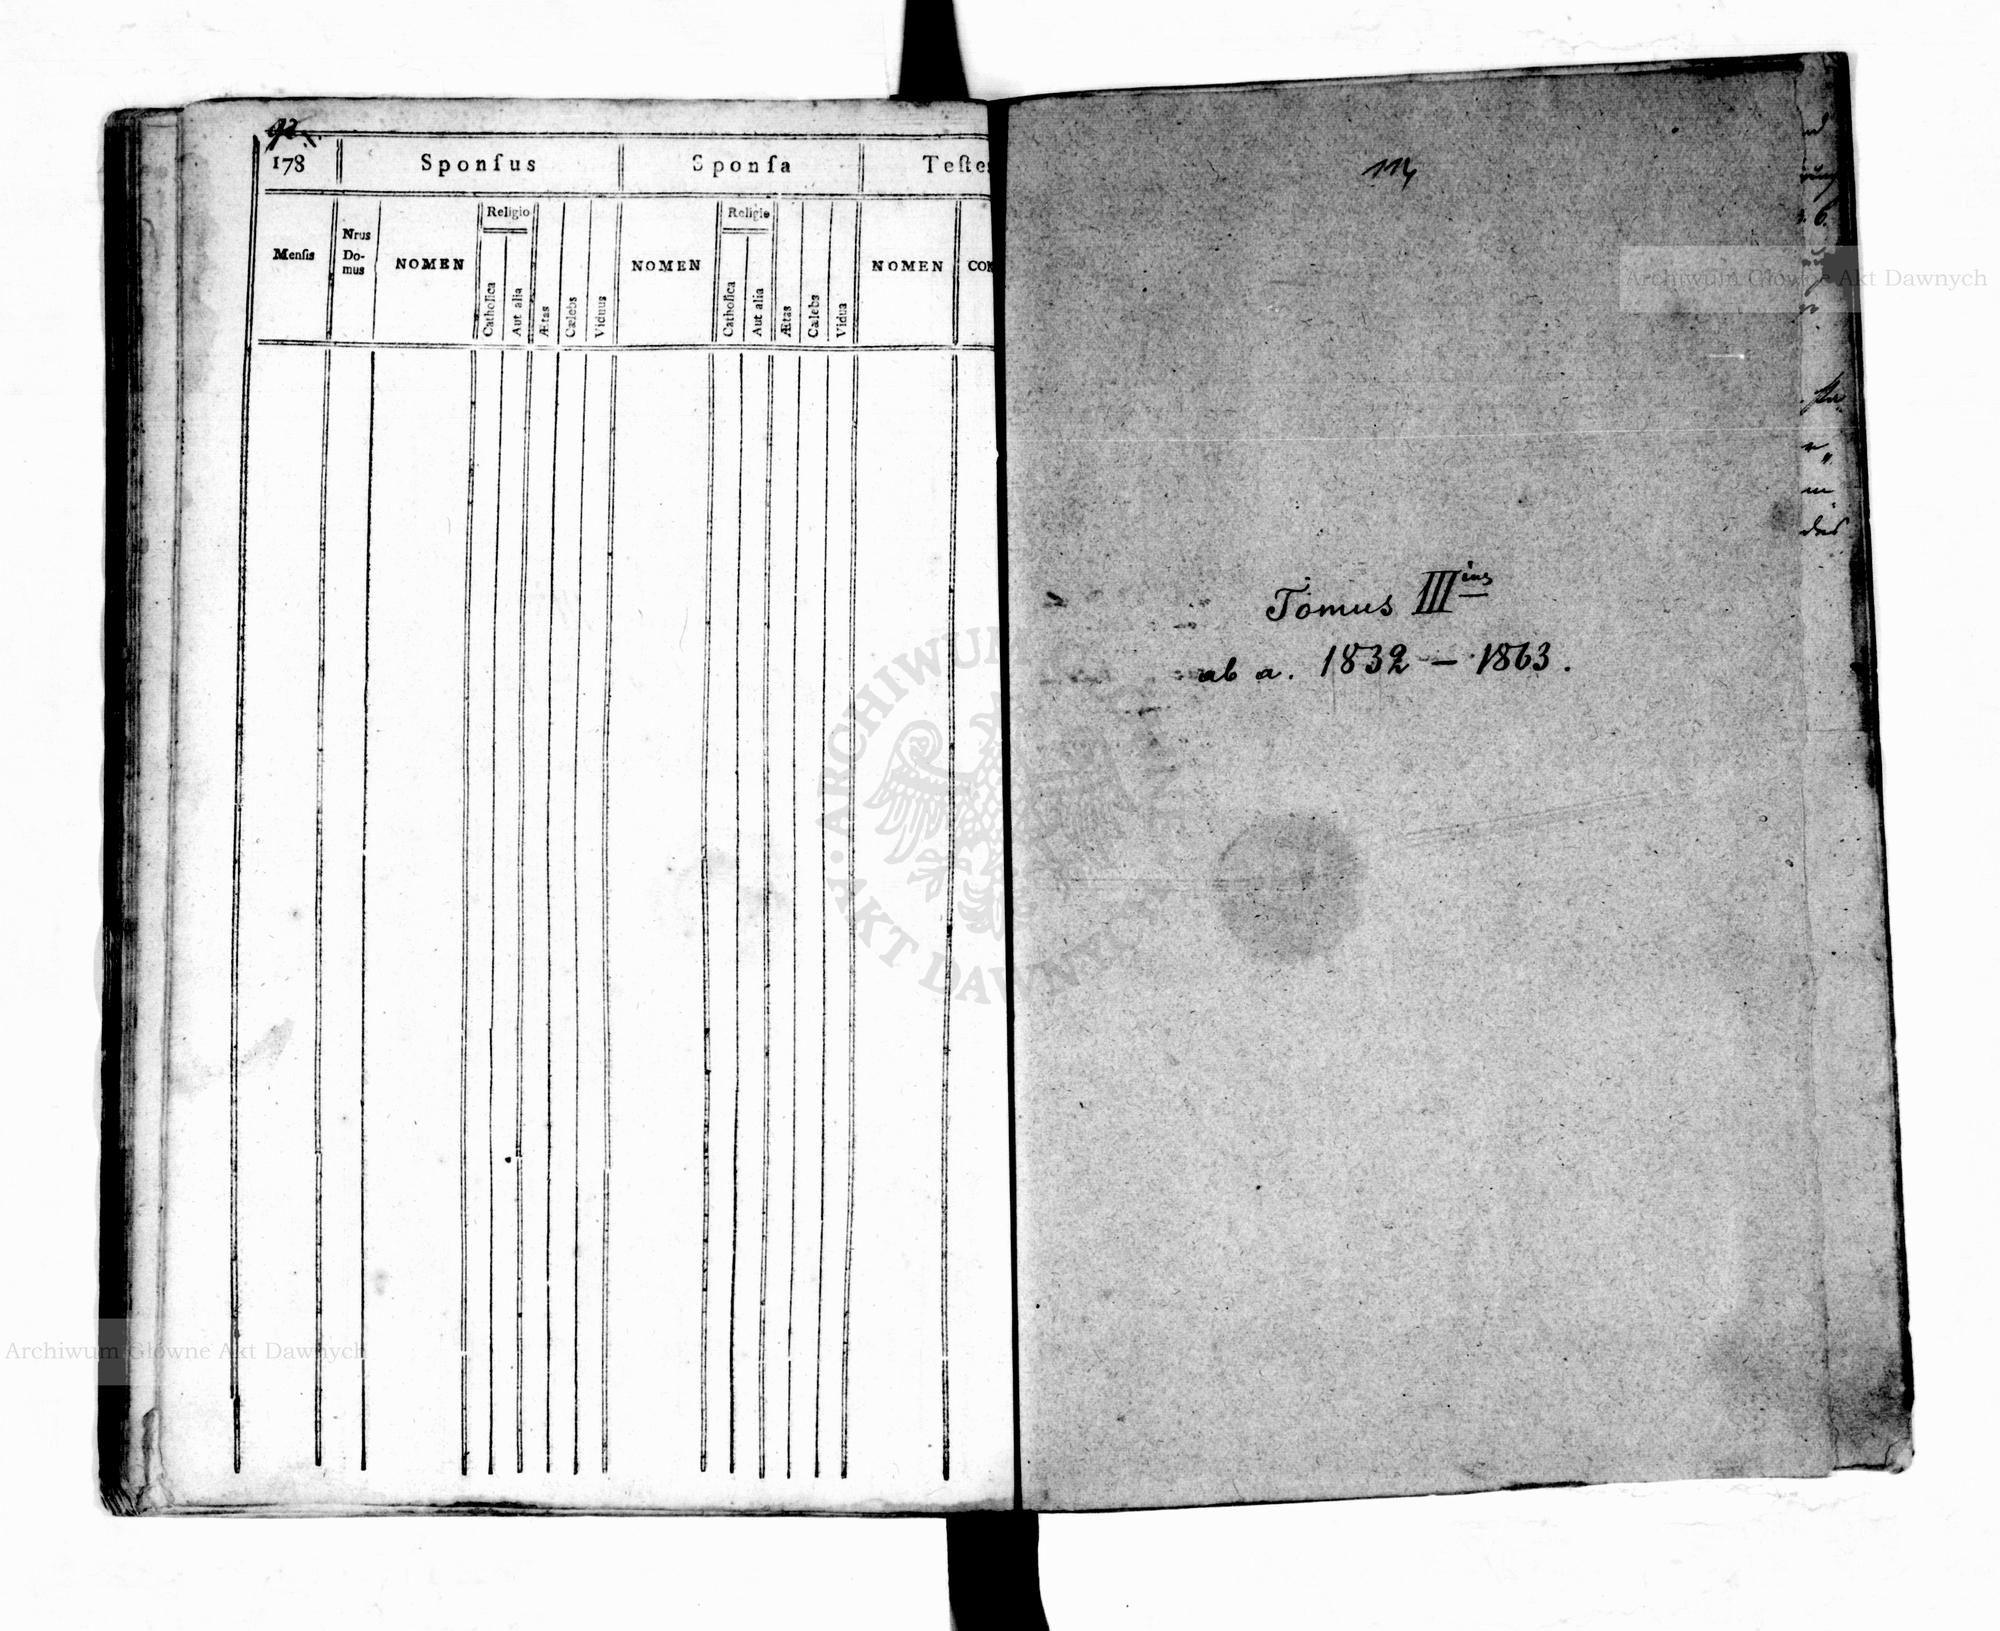 92
178 Sponſus Sponſa Teſte
Menſis
Nrus
Do-
mus
NOMEN
Religio
Catholica
Aut alia
Ætas
Cælebs
Viduus
NOMEN
Religio
Catholica
Aut alia
Ætas
Cælebs
Vidua
NOMEN
CON
114
Tomus III ius
ab a. 1832 – 1863.
des
Archiwum Główne Akt Dawnych
ARCHIWUM GŁÓWNE AKT DAWNYCH
Archiwum Główne Akt Dawnych